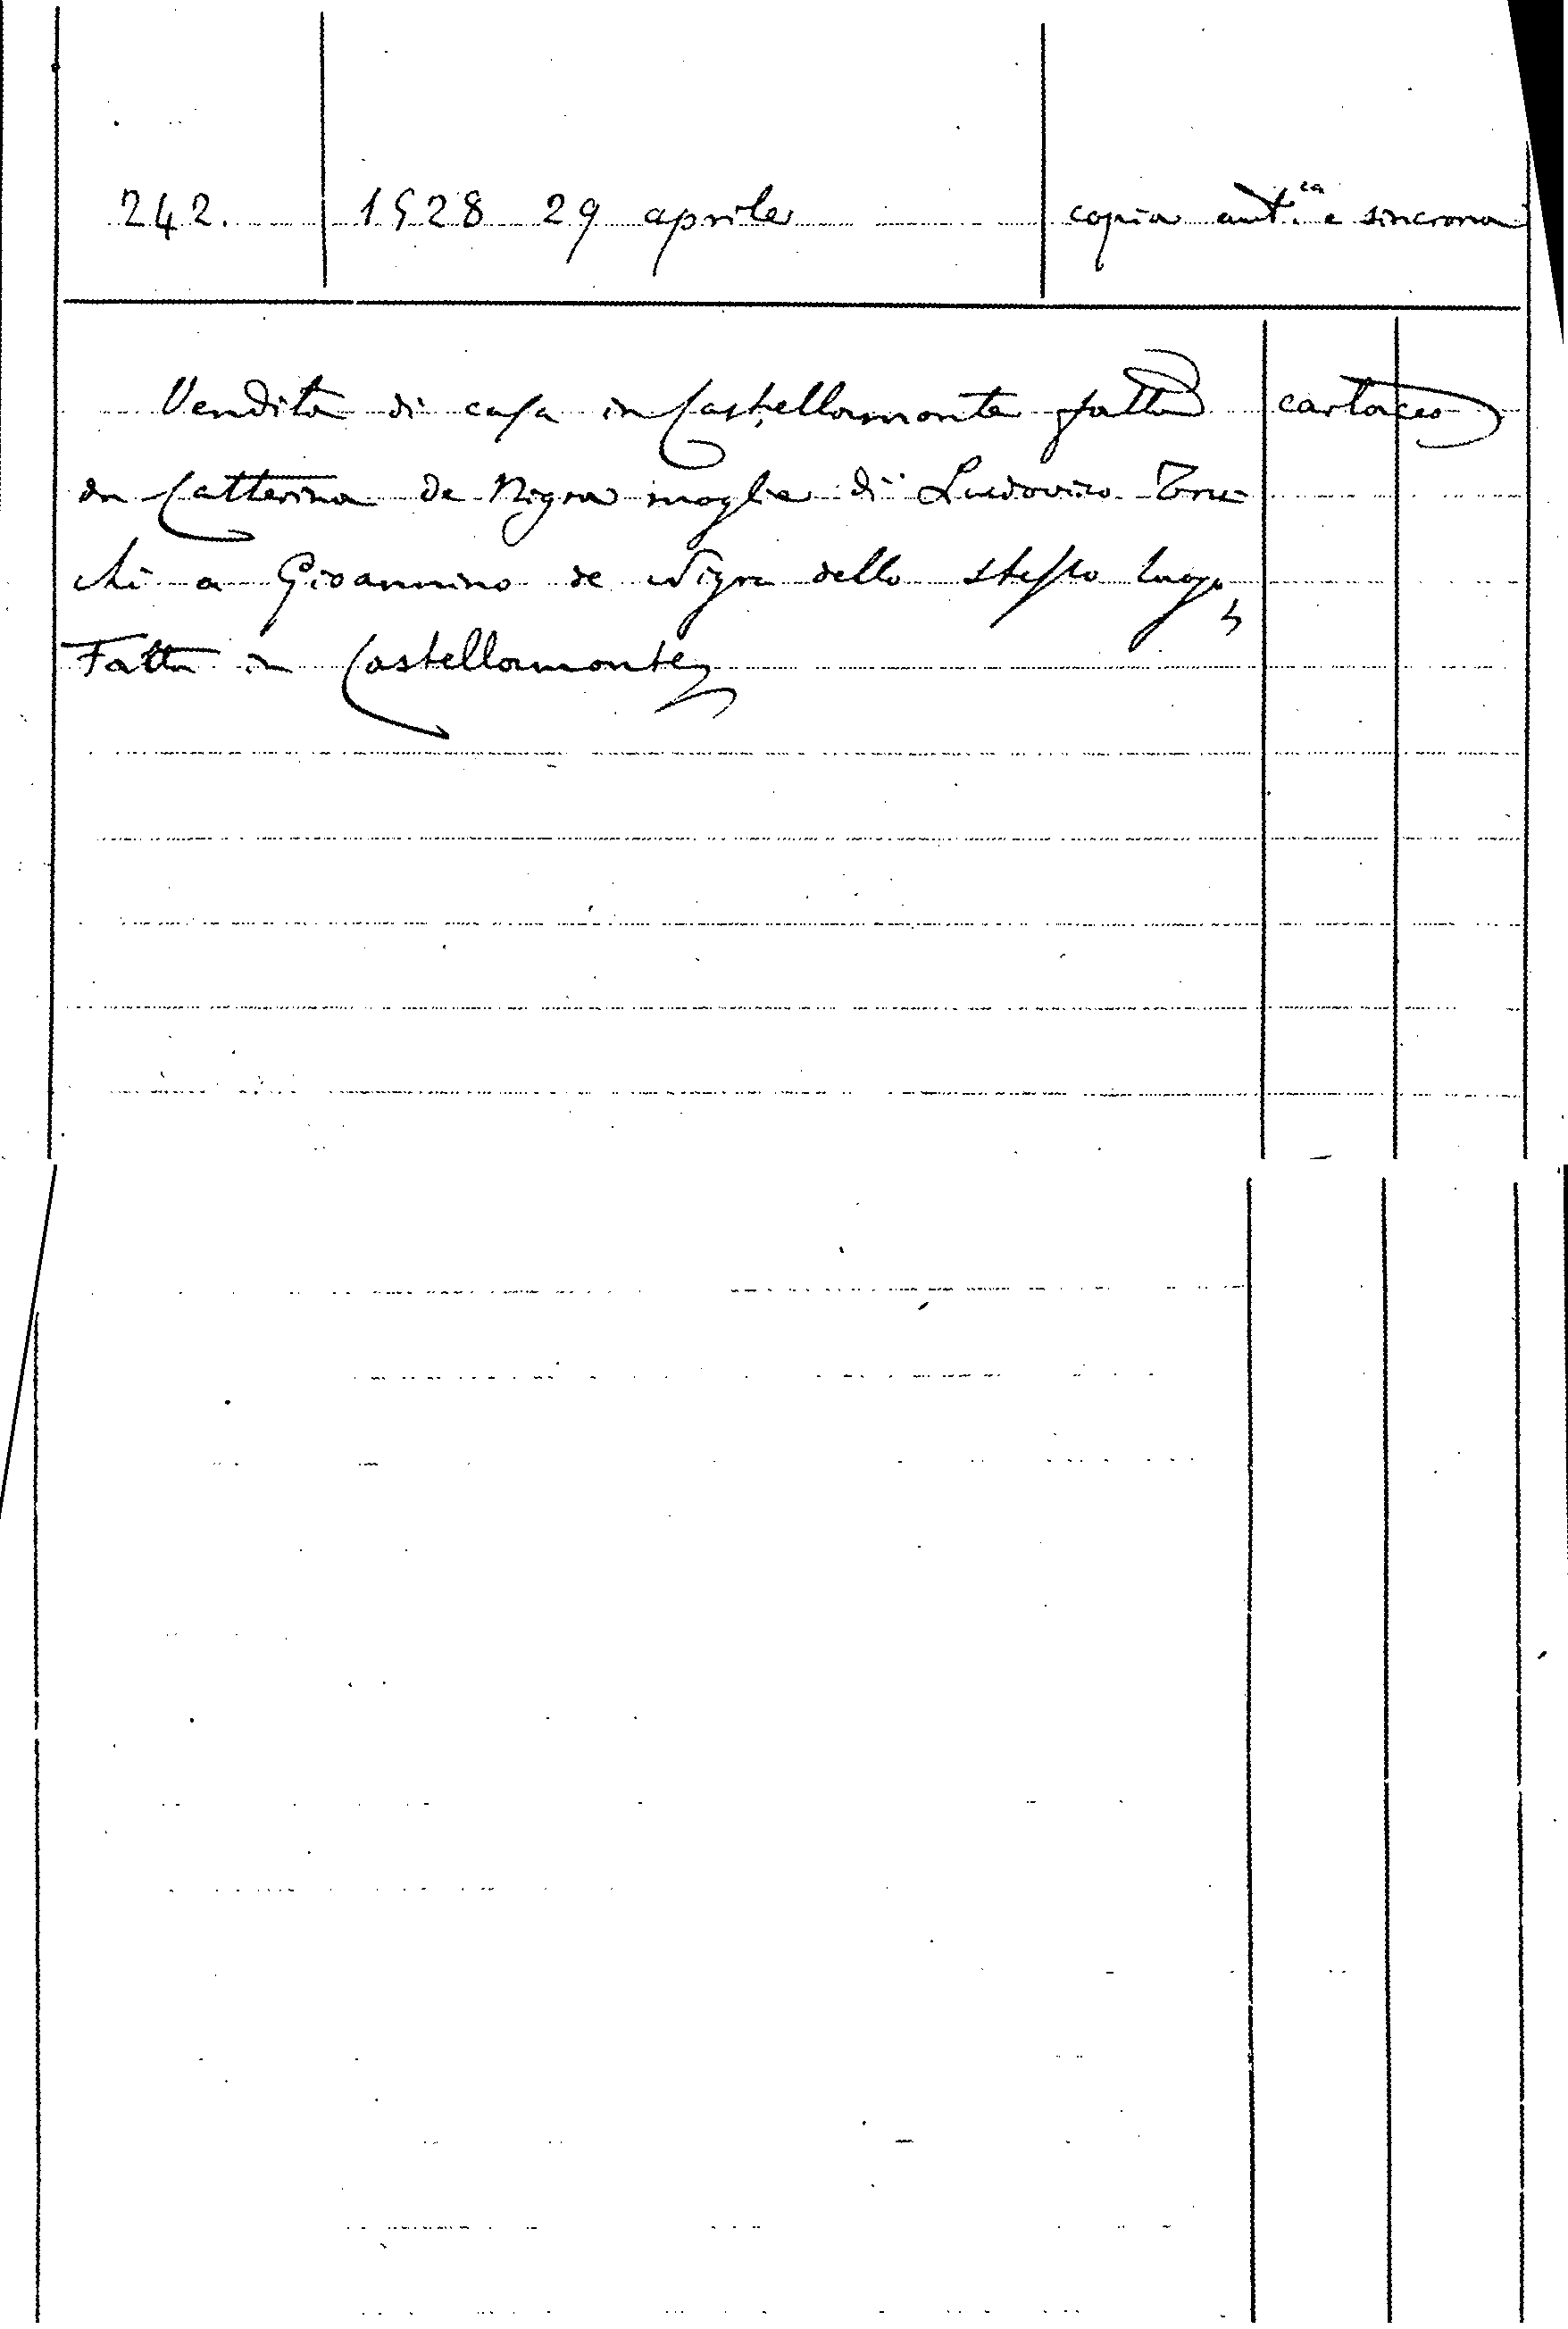 242. 1528 29 aprile copia aut.ca e sincrona
Vendita di casa in Castellamonte fatta cartaceo
da Catterina de Nigra moglie di Ludovico Tru-
chi a Gioannino de Nigra dello stesso luogo
Fatta in Castellamonte